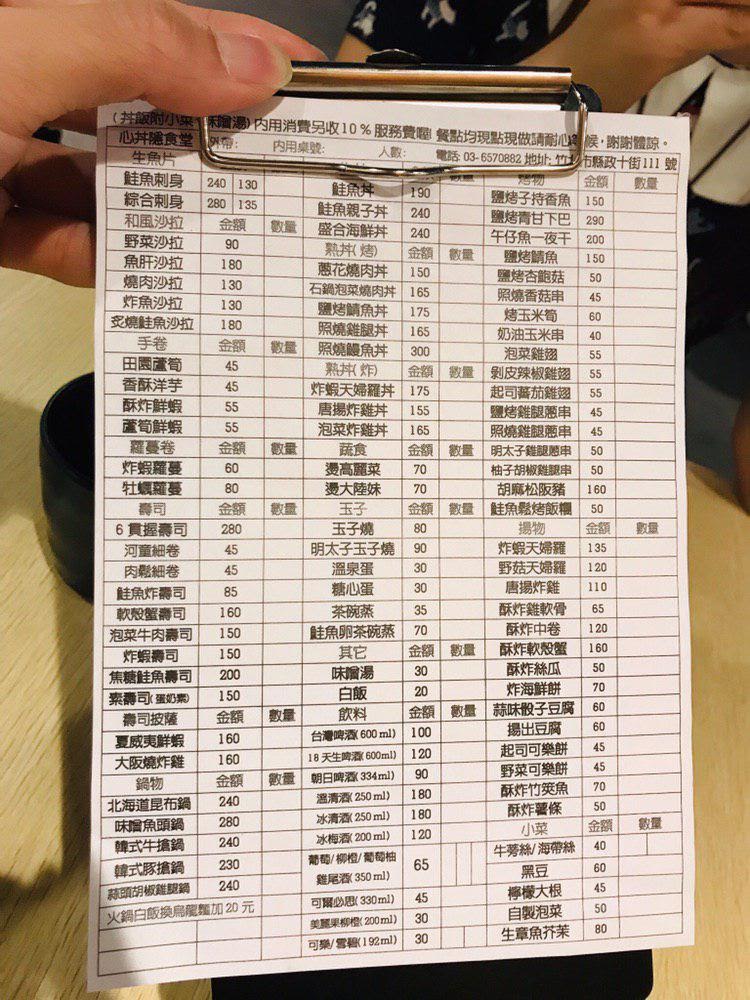 (丼飯附小菜 味噌湯) 內用消費另收10％服務費喔! 餐點均現點現做請耐心 候，謝謝體諒。
心丼隱食堂 外帶: 內用桌號: 人數: 電話: 03-6570882 地址: 竹 市縣政十街111 號
生魚片
鮭魚刺身 240 130
綜合刺身 280 135
和風沙拉 金額 數量
野菜沙拉 90
魚肝沙拉 180
燒肉沙拉 130
炸魚沙拉 130
炙燒鮭魚沙拉 180
手卷 金額 數量
田園蘆筍 45
香酥洋芋 45
酥炸鮮蝦 55
蘆筍鮮蝦 55
蘿蔓卷 金額 數量
炸蝦蘿蔓 60
牡蠣蘿蔓 80
壽司 金額 數量
6 貫握壽司 280
河童細卷 45
肉鬆細卷 45
鮭魚炸壽司 85
軟殼蟹壽司 160
泡菜牛肉壽司 150
炸蝦壽司 150
焦糖鮭魚壽司 200
素壽司(蛋奶素) 150
壽司披薩 金額 數量
夏威夷鮮蝦 160
大阪燒炸雞 160
鍋物 金額 數量
北海道昆布鍋 240
味噌魚頭鍋 280
韓式牛搶鍋 240
韓式豚搶鍋 230
蒜頭胡椒雞腿鍋 240
火鍋白飯換烏龍麵加 20 元
鮭魚丼 190
鮭魚親子丼 240
盛合海鮮丼 240
熟丼(烤) 金額 數量
蔥花燒肉丼 150
石鍋泡菜燒肉丼 165
鹽烤鯖魚丼 175
照燒雞腿丼 165
照燒鰻魚丼 300
熟丼(炸) 金額 數量
炸蝦天婦羅丼 175
唐揚炸雞丼 155
泡菜炸雞丼 165
蔬食 金額 數量
燙高麗菜 70
燙大陸妹 70
玉子 金額 數量
玉子燒 80
明太子玉子燒 90
溫泉蛋 30
糖心蛋 30
茶碗蒸 35
鮭魚卵茶碗蒸 70
其它 金額 數量
味噌湯 30
白飯 20
飲料 金額 數量
台灣啤酒(600 ml) 100
18 天生啤酒(600ml) 120
朝日啤酒(334ml) 90
溫清酒(250 ml) 180
冰清酒(250 ml) 180
冰梅酒(200 ml) 120
葡萄/柳橙/葡萄柚
雞尾酒(350 ml) 65
可爾必思(330ml) 45
美麗果柳橙(200ml) 30
可樂/雪碧(192ml) 30
烤物 金額 數量
鹽烤子持香魚 150
鹽烤青甘下巴 290
午仔魚一夜干 200
鹽烤鯖魚 150
鹽烤杏鮑菇 50
照燒香菇串 45
烤玉米筍 60
奶油玉米串 40
泡菜雞翅 55
剝皮辣椒雞翅 55
起司蕃茄雞翅 55
鹽烤雞腿蔥串 45
照燒雞腿蔥串 45
明太子雞腿蔥串 50
柚子胡椒雞腿串 50
胡麻松阪豬 160
鮭魚鬆烤飯糰 50
揚物 金額 數量
炸蝦天婦羅 135
野菇天婦羅 120
唐揚炸雞 110
酥炸雞軟骨 65
酥炸中卷 120
酥炸軟殼蟹 160
酥炸絲瓜 50
炸海鮮餅 70
蒜味骰子豆腐 60
揚出豆腐 60
起司可樂餅 45
野菜可樂餅 45
酥炸竹筴魚 70
酥炸薯條 50
小菜 金額 數量
牛蒡絲/海帶絲 40
黑豆 60
檸檬大根 45
自製泡菜 50
生章魚芥茉 80